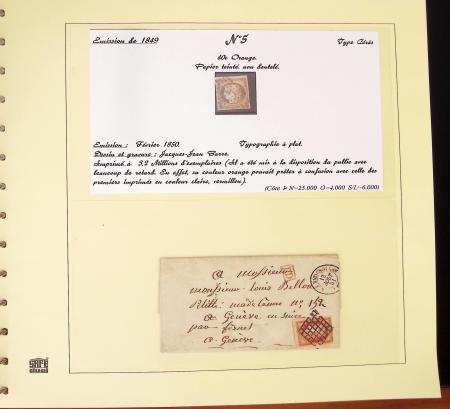 Emission de 1849 N°5 Type Cérès
40c Orange.
Papier teinté, non dentelé.
Emission : Février 1850. Typographie à plat.
Dessin et gravure : Jacques-Jean Barre.
Imprimé à 3,2 Millions d'exemplaires (Il a été mis à la disposition du public avec
beaucoup de retard. En effet, sa couleur orange pouvait prêter à confusion avec celle des
premiers imprimés en couleur claire, vermillon).
(Côte N=25.000 O=4.000 S/L=6.000)
a Monsieur
monsieur Louis Bellon
a Genève en suice
par fernet
a Genève
SAFE